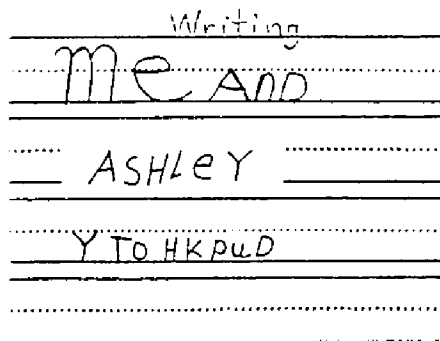 Writing
me AnD
ASHLeY
Y To HKpuD